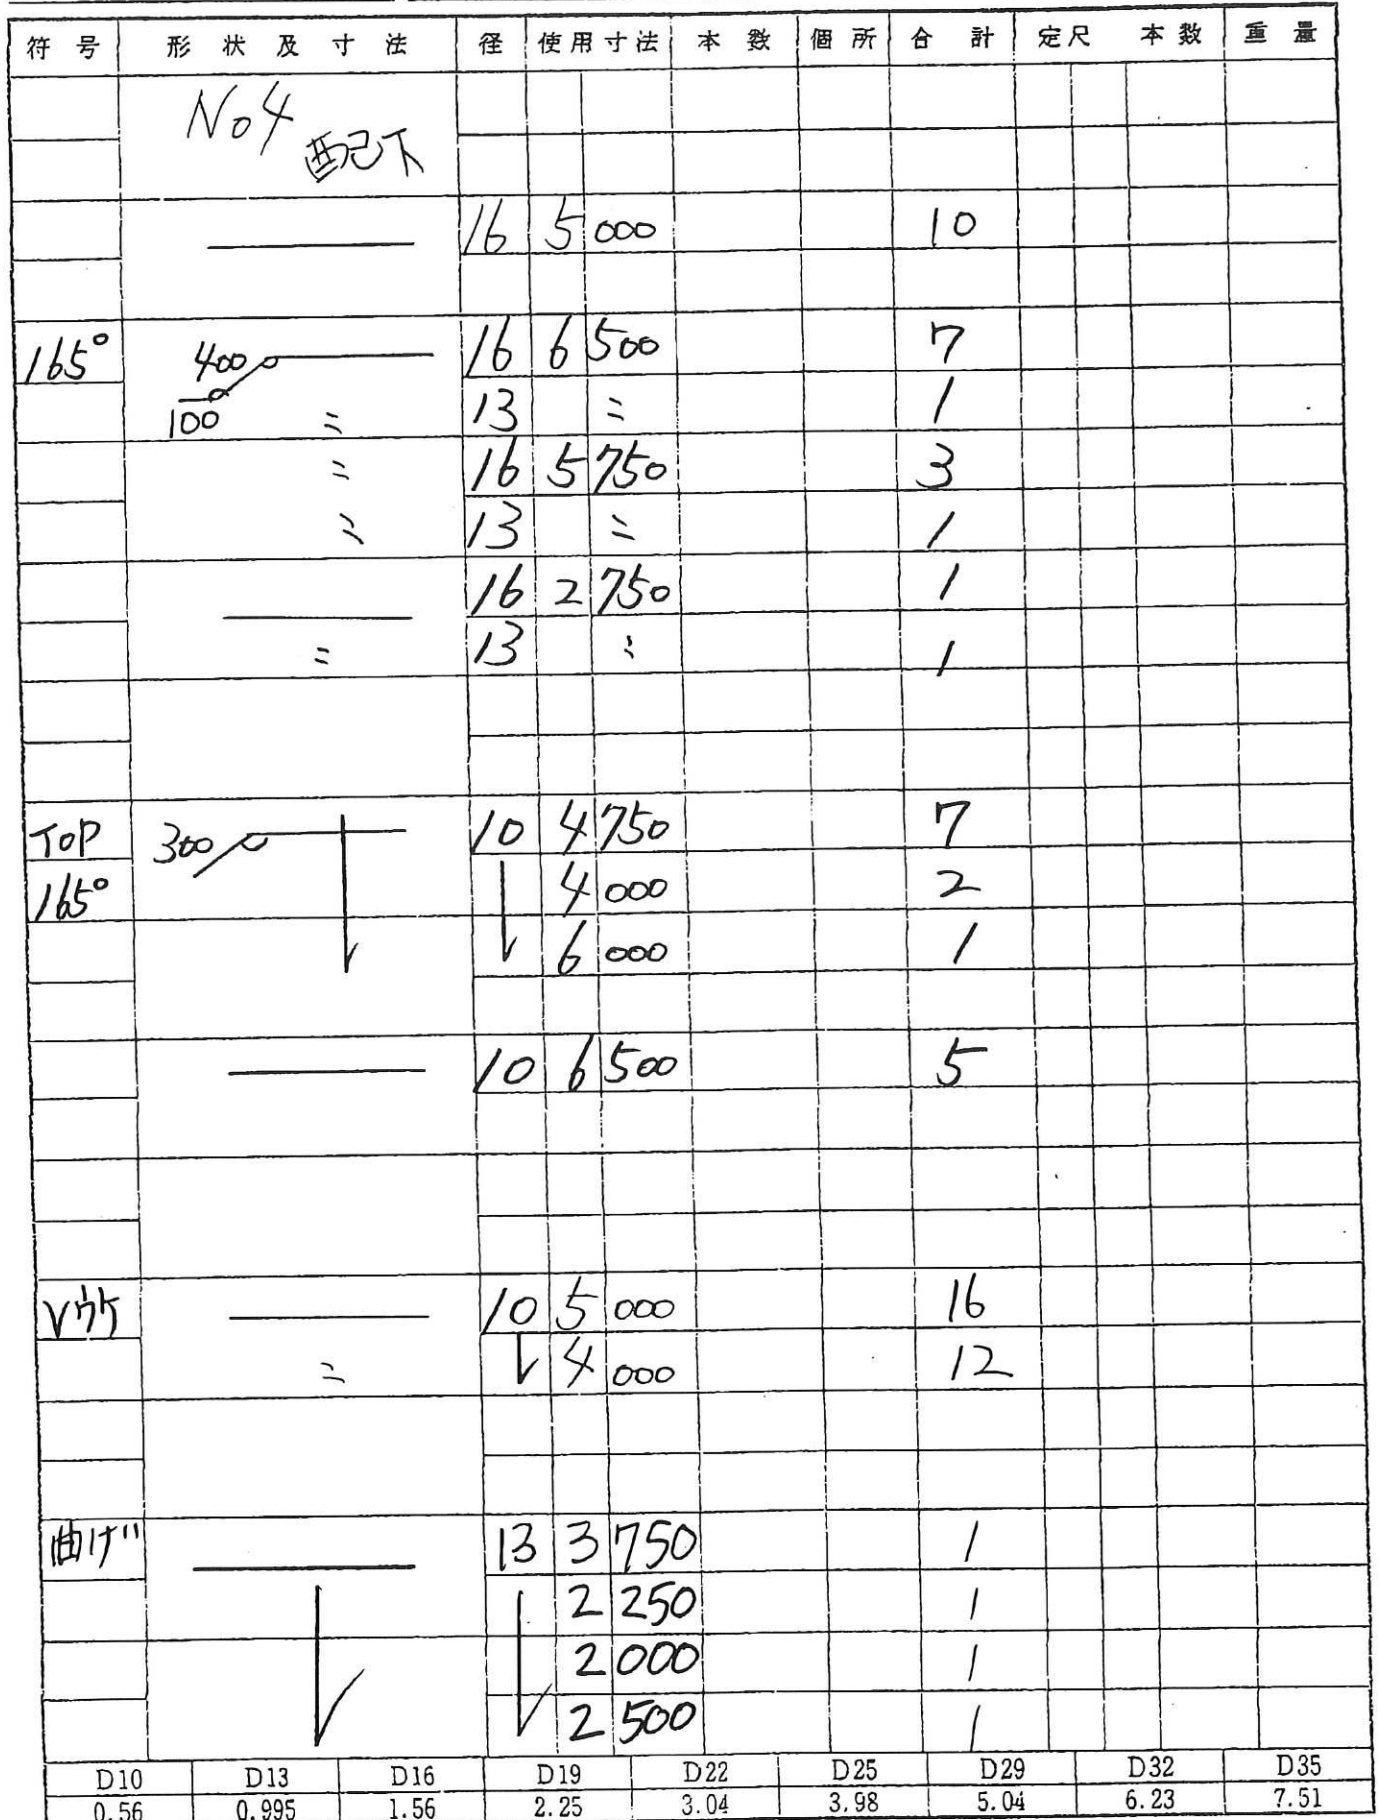 符号 形状及寸法 径 使用寸法 本数 個所 合計 定尺 本数 重量
No4
配下
16 5 000 10
165° 400 16 6 500 7
100 〃 13 〃 1
〃 16 5 750 3
〃 13 〃 1
16 2 750 1
〃 13 〃 1
TOP 300 10 4 750 7
165° ↓ 4 000 2
6 000 1
10 6 500 5
Vウケ 10 5 000 16
〃 ↓ 4 000 12
曲げ 13 3 750 1
2 250 1
2 000 1
2 500 1
D10 D13 D16 D19 D22 D25 D29 D32 D35
0.56 0.995 1.56 2.25 3.04 3.98 5.04 6.23 7.51